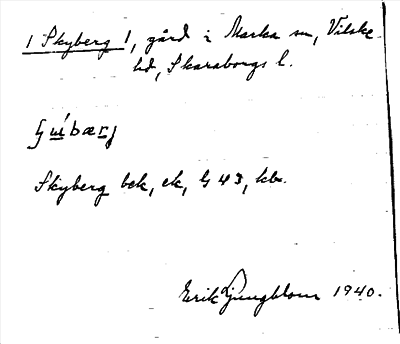 1 Skyberg 1, gård i Marka sn, Vilske-
hd, Skaraborgs l.
Skyberg bek, ek, G 43, kbr.
Erik Ljungblom 1940.